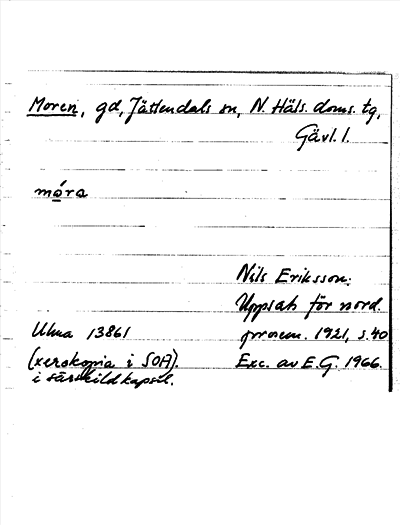 Moren, gd, Jättendals sn, N. Häls. doms. tg,
Gävl. l.
móra
Nils Eriksson:
Uppsats för nord.
prosem. 1921, s. 40
Ulma 13861
(xerokopia i SOA).
i särskild kapsel.
Exc. av E.G. 1966.